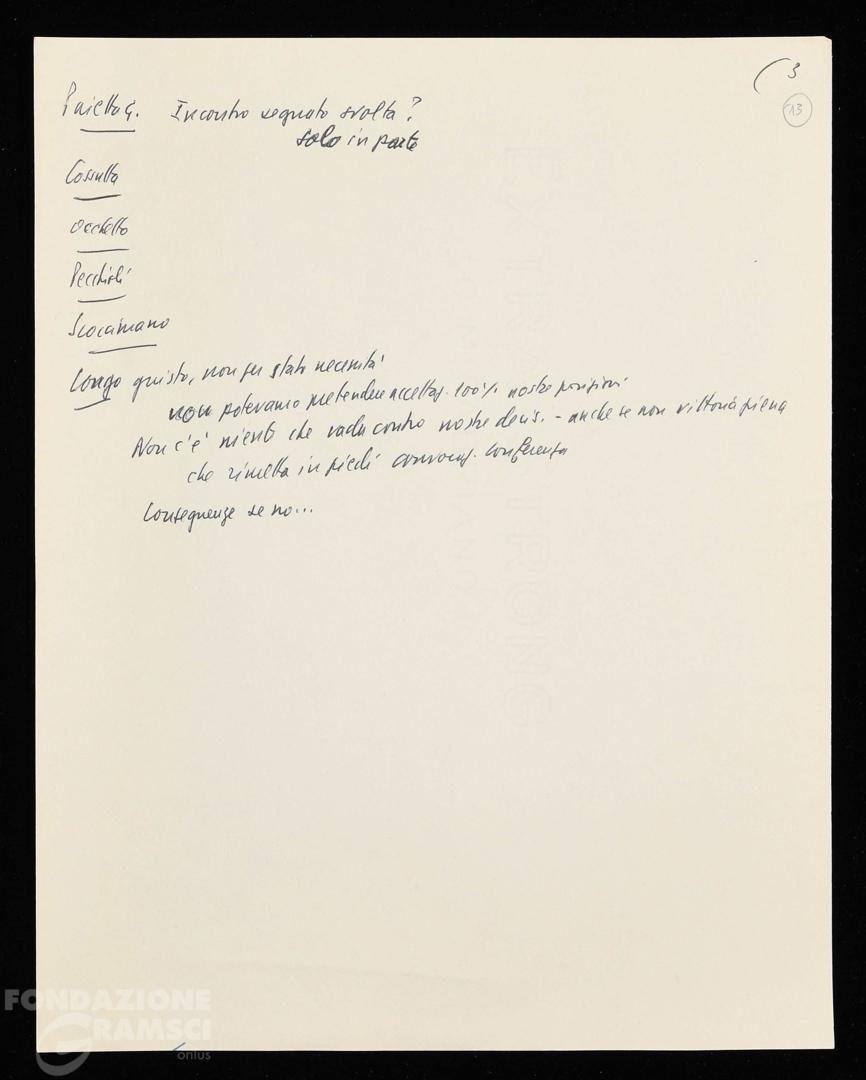 (3
13
Paietta G. Incontro segnato svolta?
solo in parte
Cossutta
Occhetto
Pecchioli
Scoccimarro
Longo giusto, non per stato necessità
non potevamo pretendere accettaz. 100% nostre posizioni
Non c'è niente che vada contro nostre decis. - anche se non vittoria piena
che rimetta in piedi convocaz. conferenza
Conseguenze se no...
FONDAZIONE
GRAMSCI
onlus